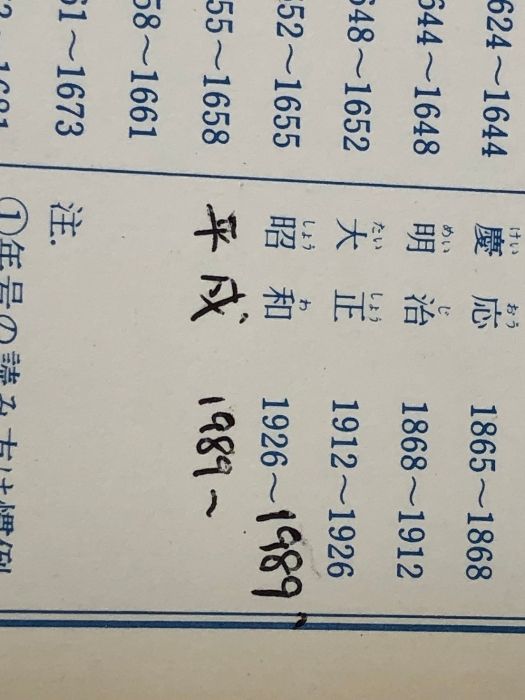 624～1644
644～1648
648～1652
652～1655
55～1658
58～1661
61～1673
～1681
けい おう
慶応 1865～1868
めい じ
明治 1868～1912
たい しょう
大正 1912～1926
しょう わ
昭和 1926～1989
平成 1989～
注.
①年号の読み方は慣例